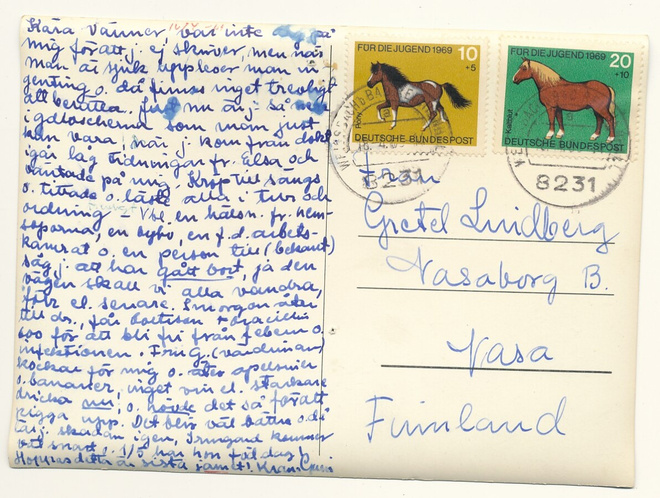 Kära vänner, bär inte på
mig för att j. ej skriver, men när
man är sjuk upplever man in-
genting o. då finns inget trevligt
att berätta. Just nu är j. så
som man just
kan vara, när j. kom från dokt.
igår låg tidningar fr. Elsa och
väntade på mig. Kröp till sängs
o. tittade o. läste allt i tur och
ordning. en hälsn. fr. hem-
en f.d. arbets-
kamrat o. en person till (bekant)
såg j. att har gått bort, ja den
vägen skall vi alla vandra,
förr el. senare. I morgon åter
till dr., får
för att bli fri från febern o.
infektionen. Fru G. (värdinnan)
kockar för mig o. äter apelsiner
o. bananer, inget vin el. starkare
dricka nu, o. det så för att
pigga upp. Det blir väl bättre o. då
är j. skadan igen, Irmgard kommer
väl snart. 1/5 har hon
Hoppas detta är sista
FÜR DIE JUGEND 1969
10
+5
Pony
DEUTSCHE BUNDESPOST
FÜR DIE JUGEND 1969
20
+10
Kaltblut
DEUTSCHE BUNDESPOST
8231
8231
Gretel Lindberg
Vasaborg B.
Vasa
Finnland